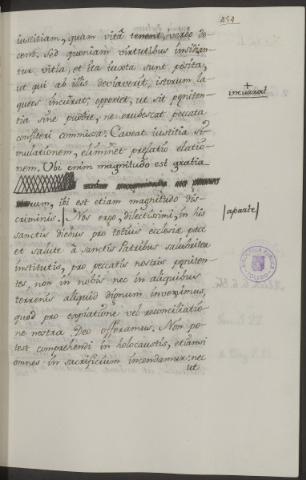 454
iustitiam, quam vitâ tenent, verbo do
cent. Sed quoniam virtutibus insidian
tur vitia, et ita iuxta sunt posita,
ut qui ab illis declinaverit, istorum la
queos incurrat; oportet, ut sit pœniten
tia sine pudore, ne erubescat peccata
confiteri commissa. Caveat iustitia si
mulationem, eliminet prefatio elatio
nem. Ubi enim magnitudo est gratia
rum, ibi est etiam magnitudo dis
criminis. Nos ergo, dilectissimi, in his
sanctis diebus pro totius ecclesiæ pace
et salute à sanctis Patribus salubriter
institutis, pro peccatis nostris pœniten
tes, non in nobis nec in aliquibus
terrenis aliquid dignum invenimus,
quod pro expiatione vel reconciliatio
ne nostra Deo offeramus. Non po
test comprehendi in holocaustis, etiamsi
omnes in sacrificium incendamur: nec
ut
incurrat
[aparte]